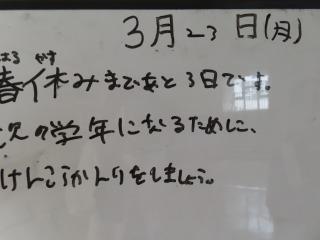 3月23日(月)
はる やす
春休みまであと3日です。
次の学年になるために、
けんこうかんりをしましょう。